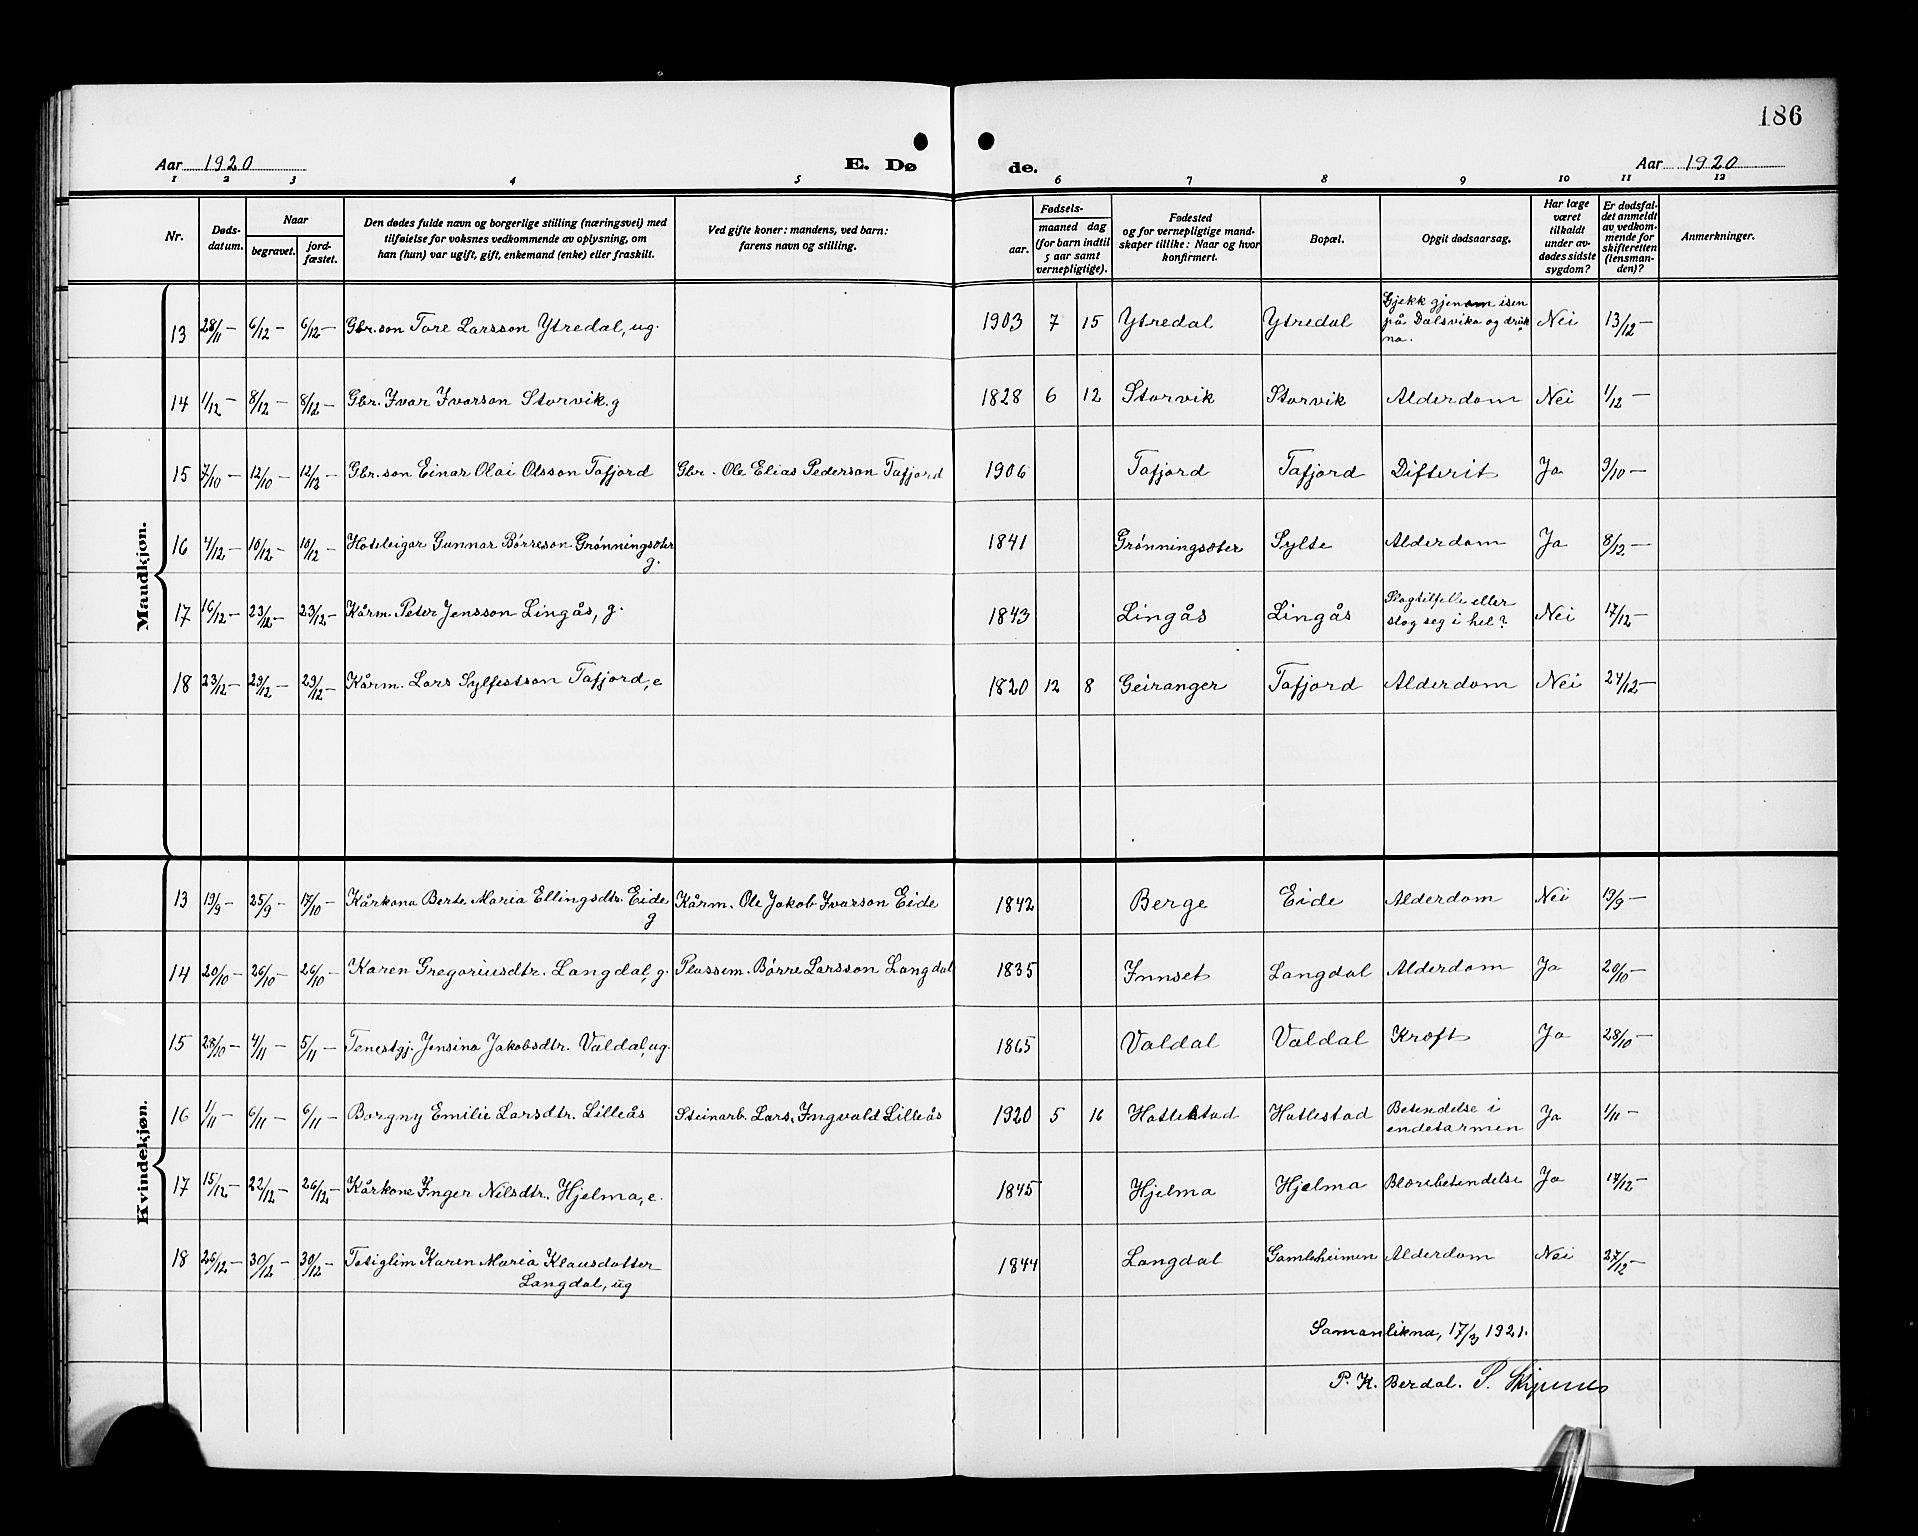 186
Aar 1920
E. Dø
de.
Aar 1920
1 2 3 4 5 6 7 8 9 10 11 12
Nr.
Døds-
datum.
Naar
begravet.
jord-
fæstet.
Den dødes fulde navn og borgerlige stilling (næringsvei) med
tilføielse for voksnes vedkommende av oplysning, om
han (hun) var ugift, gift, enkemand (enke) eller fraskilt.
Ved gifte koner: mandens, ved barn:
farens navn og stilling.
Fødsels-
aar.
maaned dag
(for barn indtil
5 aar samt
vernepligtige).
Fødested
og for vernepligtige mand-
skaper tillike: Naar og hvor
konfirmert.
Bopæl.
Opgit dødsaarsag.
Har læge
været
tilkaldt
under av-
dødes sidste
sygdom?
Er dødsfal-
det anmeldt
av vedkom-
mende for
skifteretten
(lensman-
den)?
Anmerkninger.
Mandkjøn.
13 28/11 — 6/12 — 6/12 — Gbr.son Tore Larsson Ytredal, ug. 1903 7 15 Ytredal Ytredal Gjekk gjenom isen
på Dalsvika og druk
na. Nei 13/12 —
14 1/12 — 8/12 — 8/12 — Gbr. Ivar Ivarson Storvik. g 1828 6 12 Storvik Storvik Alderdom Nei 1/12 —
15 7/10 — 12/10 — 12/12 — Gbr.son Einar Olai Olsson Tafjord Gbr. Ole Elias Pederson Tafjord 1906 Tafjord Tafjord Difterit Ja 9/10 —
16 4/12 — 10/12 — 10/12 — Hoteleigar Gunnar Børreson Grønningsæter
g. 1841 Grønningsæter Sylte Alderdom Ja 8/12 —
17 16/12 — 23/12 — 23/12 — Kårm. Peter Jensson Lingås, g. 1843 Lingås Lingås Slagtilfelle eller
slog seg i hel? Nei 17/12 —
18 23/12 — 29/12 — 29/12 — Kårm. Lars Sylfestson Tafjord, e 1820 12 8 Geiranger Tafjord Alderdom Nei 24/12 —
Kvindekjøn.
13 19/9 — 25/9 — 17/10 — Kårkona Berte Maria Ellingsdtr. Eide
g Kårm. Ole Jakob Ivarson Eide 1842 Berge Eide Alderdom Nei 19/9 —
14 20/10 — 26/10 — 26/10 — Karen Gregoriusdtr. Langdal, g. Plassem. Børre Larsson Langdal 1835 Innset Langdal Alderdom Ja 20/10 —
15 28/10 — 4/11 — 5/11 — Tenestgj. Jensina Jakobsdtr. Valdal, ug. 1865 Valdal Valdal Kræft Ja 28/10 —
16 1/11 — 6/11 — 6/11 — Borgny Emilie Larsdtr. Lilleås Steinarb. Lars Ingvald Lilleås 1920 5 16 Hatlestad Hatlestad Betendelse i
endetarmen Ja 1/11 —
17 15/12 — 22/12 — 26/12 — Kårkone Inger Nilsdtr. Hjelma, e. 1845 Hjelma Hjelma Blærebetendelse Ja 17/12 —
18 26/12 — 30/12 — 30/12 — Fatiglim Karen Maria Klausdotter
Langdal, ug 1844 Langdal Gamleheimen Alderdom Nei 27/12 —
Samanlikna, 17/3 1921.
P. K. Berdal.